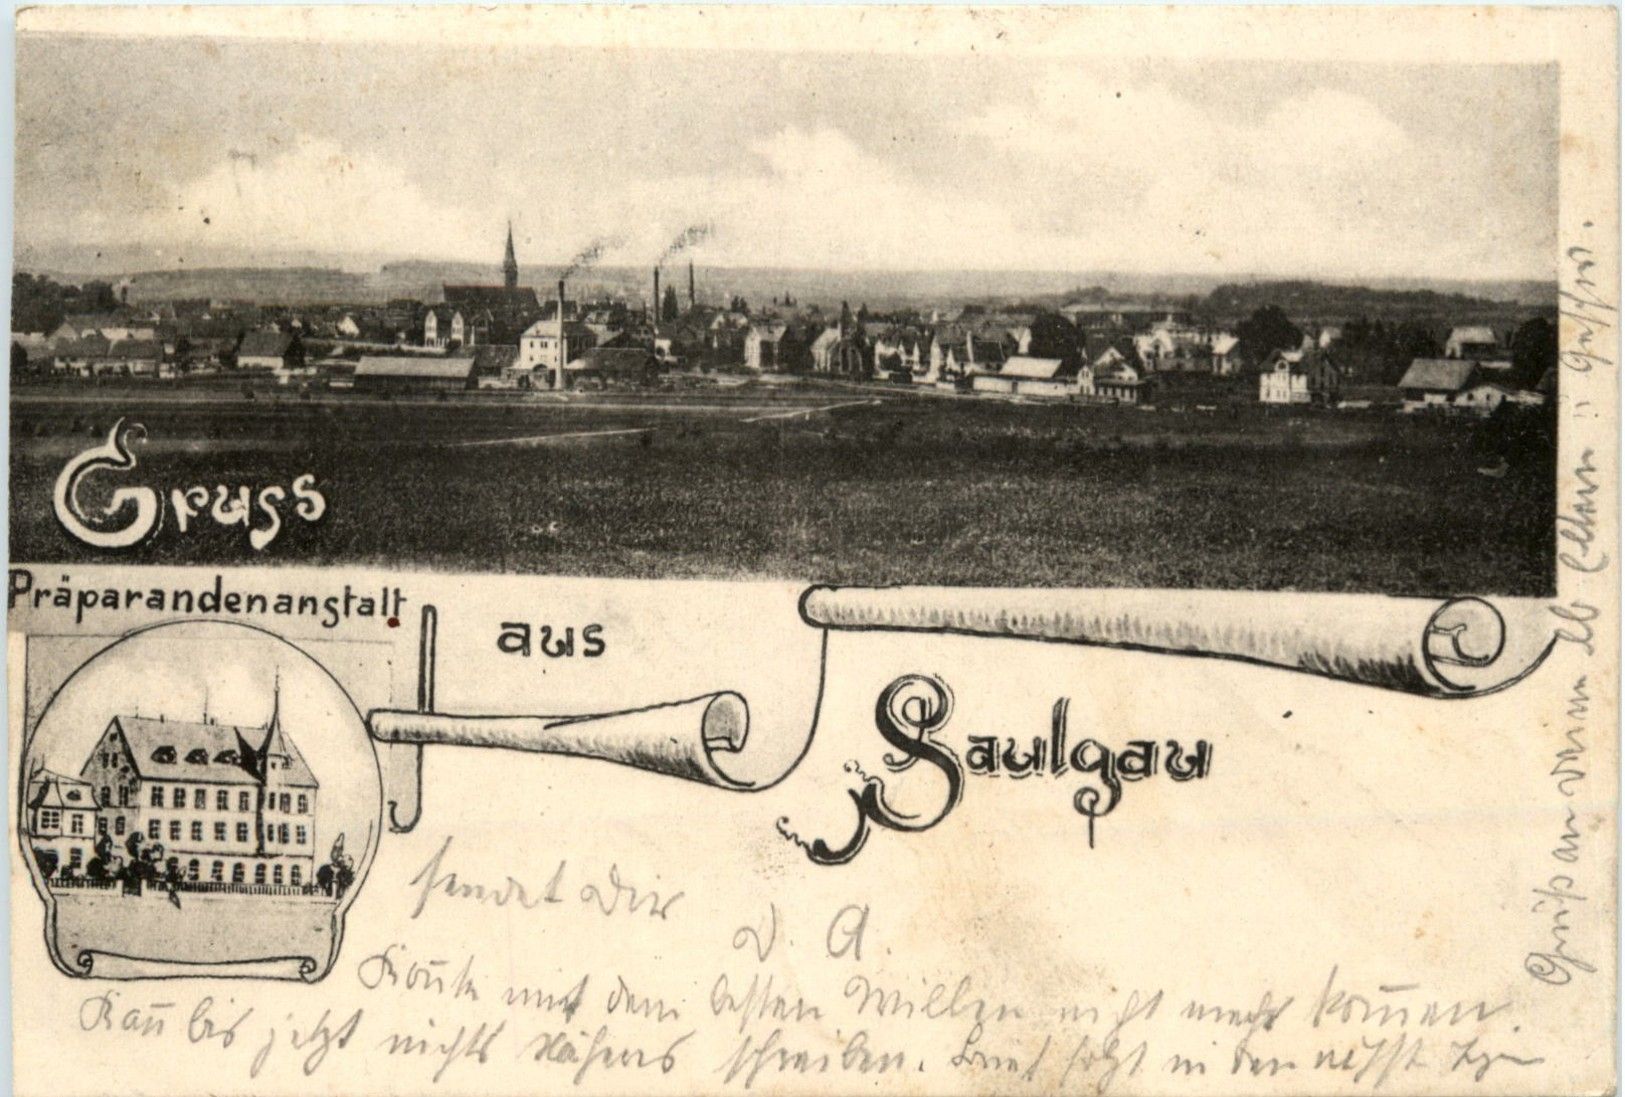 Gruss
Präparandenanstalt.
aus
Saulgau
sendet Dir
D. A.
Konnte mit dem besten Willen nicht mehr kommen.
Kann bis jetzt nichts Näheres schreiben. Brief folgt in den nächst
Gruß an Deine lb Eltern u Geschw.